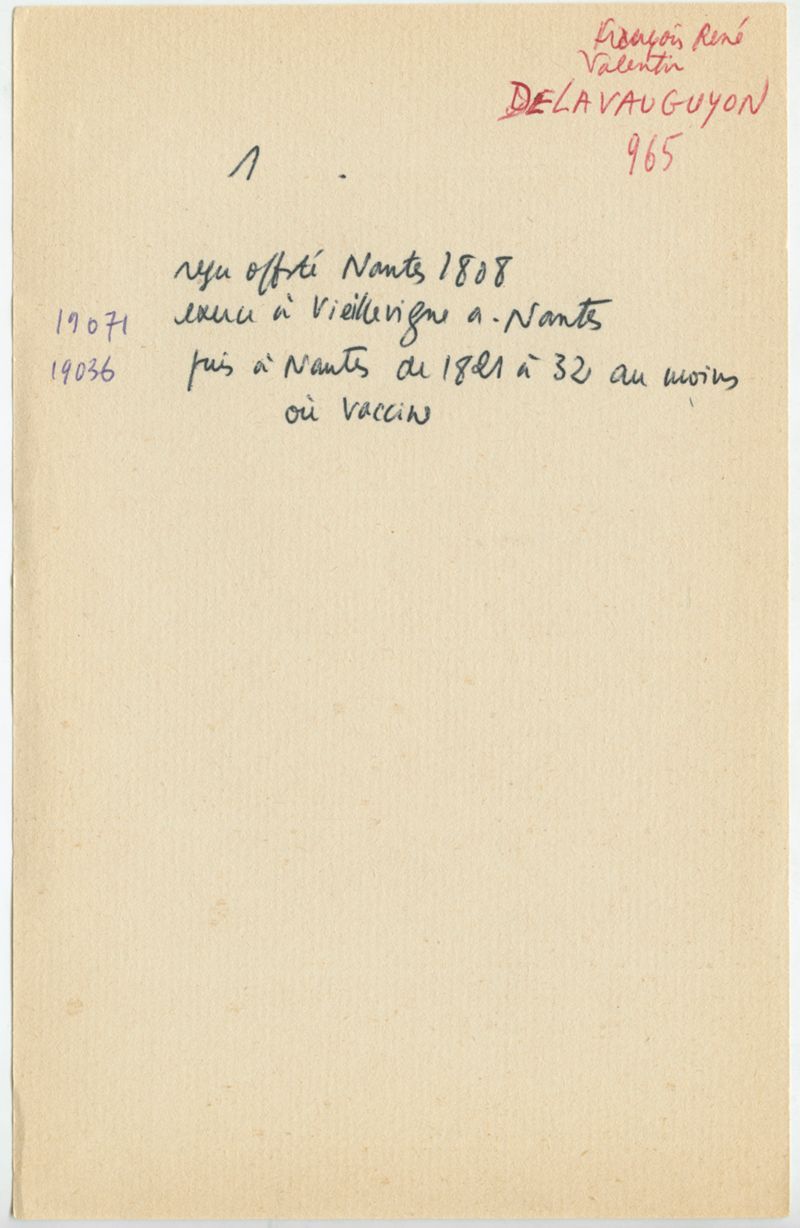 François René
Valentin
DELAVAUGUYON
965
1 .
reçu off santé Nantes 1808
19071 exerce à Vieillevigne a. Nantes
19036 puis à Nantes de 1821 à 32 au moins
où vaccine